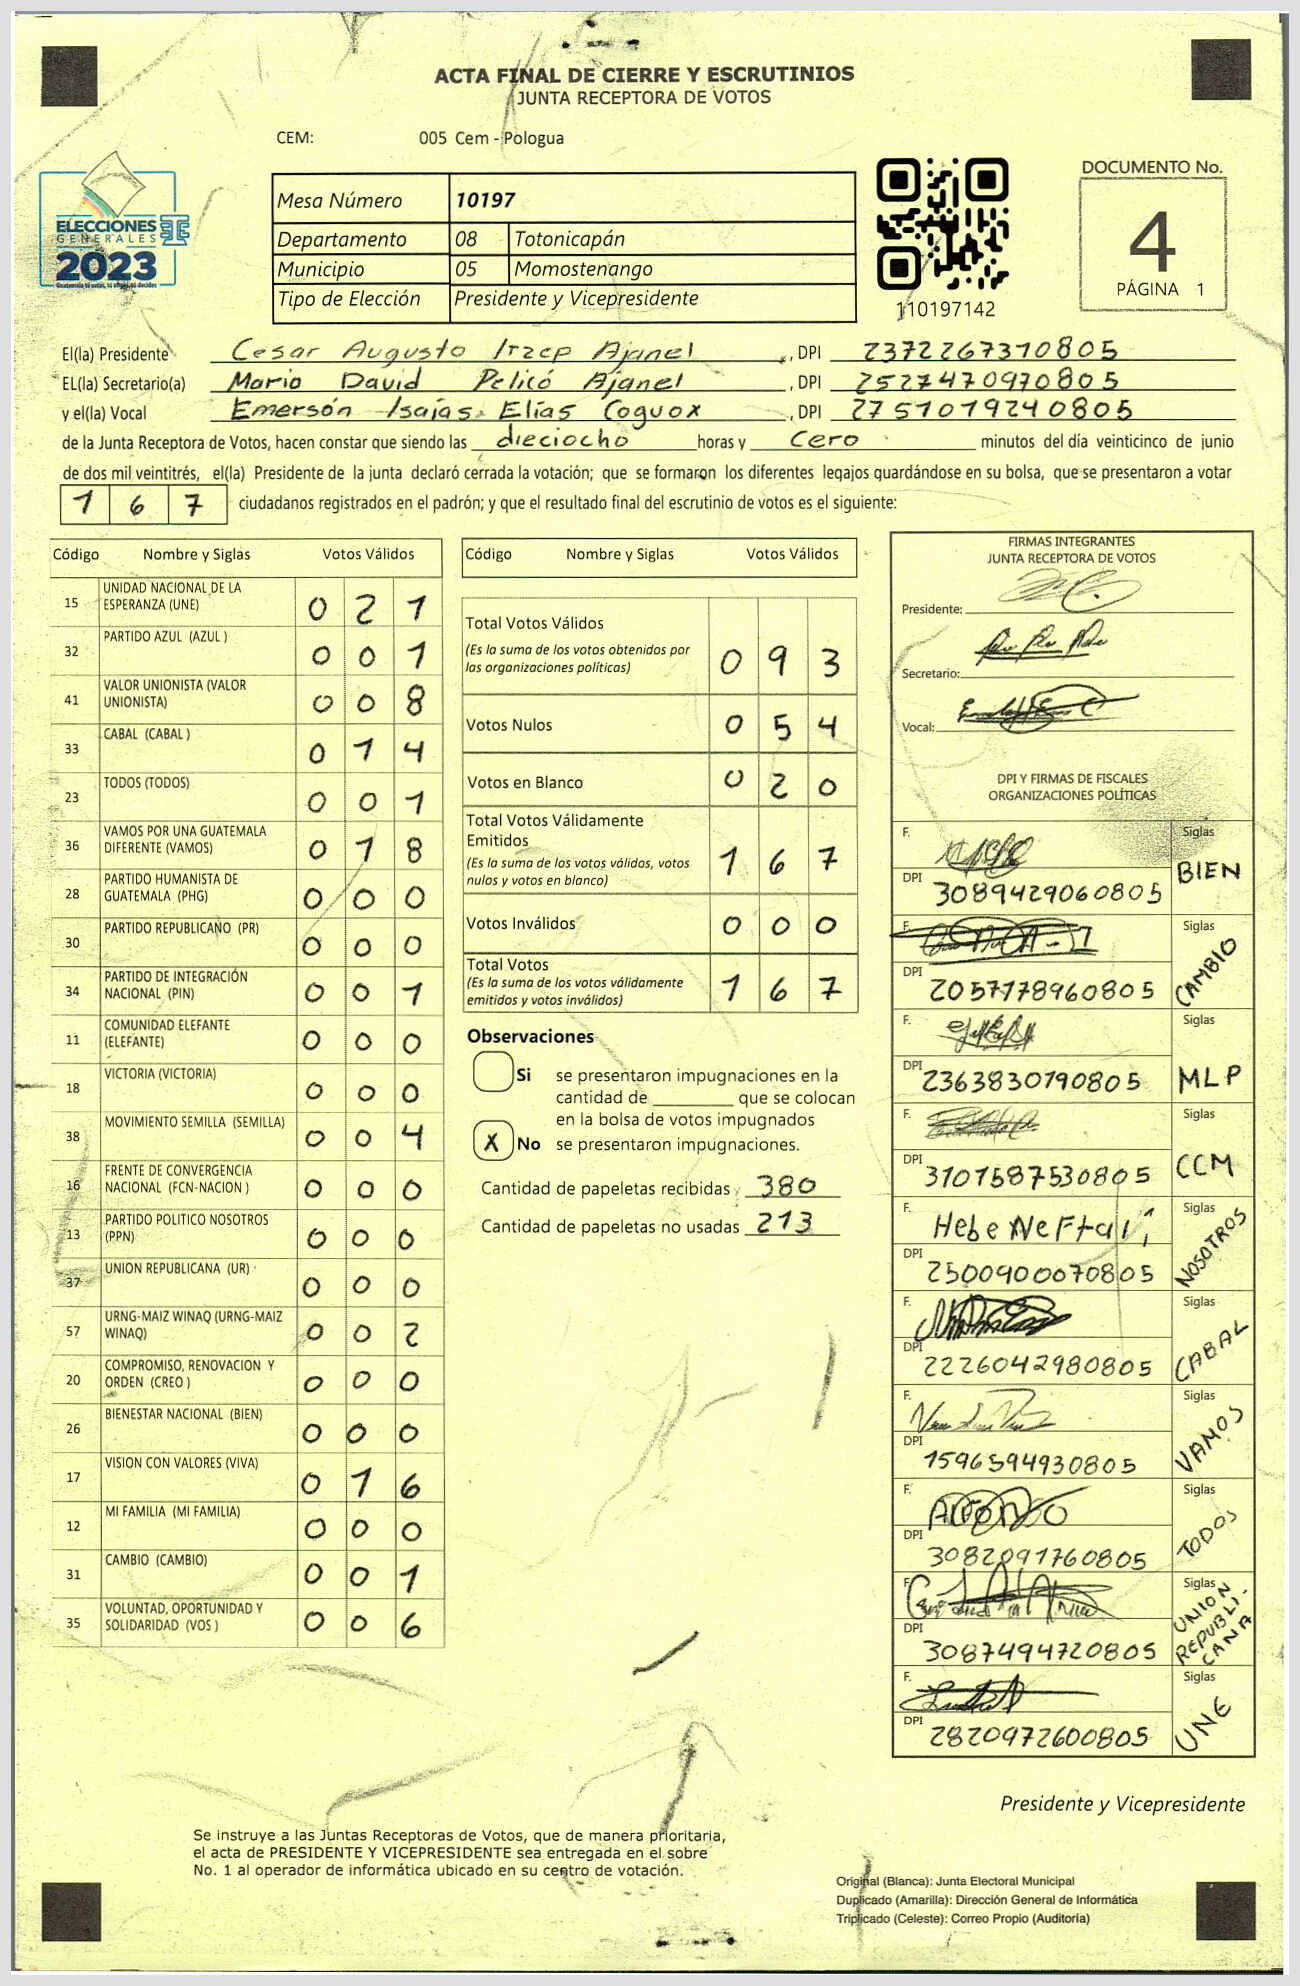 ACTA FINAL DE CIERRE Y ESCRUTINIOS
JUNTA RECEPTORA DE VOTOS
CEM: 005 Cem - Pologua
ELECCIONES
GENERALES
2023
Mesa Número 10197
Departamento 08 Totonicapán
Municipio 05 Momostenango
Tipo de Elección Presidente y Vicepresidente
110197142
DOCUMENTO No.
4
PÁGINA 1
El(la) Presidente Cesar Augusto Itzep Ajanel, DPI 2372267310805
EL(la) Secretario(a) Mario David Pelicó Ajanel, DPI 2527470970805
y el(la) Vocal Emersón Isaías Elías Coguox, DPI 2751019240805
de la Junta Receptora de Votos, hacen constar que siendo las dieciocho horas y cero minutos del día veinticinco de junio
de dos mil veintitrés, el(la) Presidente de la junta declaró cerrada la votación; que se formaron los diferentes legajos guardándose en su bolsa, que se presentaron a votar
1 6 7 ciudadanos registrados en el padrón; y que el resultado final del escrutinio de votos es el siguiente:
Código Nombre y Siglas Votos Válidos
15 UNIDAD NACIONAL DE LA ESPERANZA (UNE) 0 2 1
32 PARTIDO AZUL (AZUL ) 0 0 1
41 VALOR UNIONISTA (VALOR UNIONISTA) 0 0 8
33 CABAL (CABAL ) 0 1 4
23 TODOS (TODOS) 0 0 1
36 VAMOS POR UNA GUATEMALA DIFERENTE (VAMOS) 0 1 8
28 PARTIDO HUMANISTA DE GUATEMALA (PHG) 0 0 0
30 PARTIDO REPUBLICANO (PR) 0 0 0
34 PARTIDO DE INTEGRACIÓN NACIONAL (PIN) 0 0 1
11 COMUNIDAD ELEFANTE (ELEFANTE) 0 0 0
18 VICTORIA (VICTORIA) 0 0 0
38 MOVIMIENTO SEMILLA (SEMILLA) 0 0 4
16 FRENTE DE CONVERGENCIA NACIONAL (FCN-NACION ) 0 0 0
13 PARTIDO POLITICO NOSOTROS (PPN) 0 0 0
37 UNION REPUBLICANA (UR) 0 0 0
57 URNG-MAIZ WINAQ (URNG-MAIZ WINAQ) 0 0 2
20 COMPROMISO, RENOVACION Y ORDEN (CREO ) 0 0 0
26 BIENESTAR NACIONAL (BIEN) 0 0 0
17 VISION CON VALORES (VIVA) 0 1 6
12 MI FAMILIA (MI FAMILIA) 0 0 0
31 CAMBIO (CAMBIO) 0 0 1
35 VOLUNTAD, OPORTUNIDAD Y SOLIDARIDAD (VOS ) 0 0 6
Código Nombre y Siglas Votos Válidos
Total Votos Válidos
(Es la suma de los votos obtenidos por las organizaciones políticas) 0 9 3
Votos Nulos 0 5 4
Votos en Blanco 0 2 0
Total Votos Válidamente Emitidos
(Es la suma de los votos válidos, votos nulos y votos en blanco) 1 6 7
Votos Inválidos 0 0 0
Total Votos
(Es la suma de los votos válidamente emitidos y votos inválidos) 1 6 7
Observaciones
Si se presentaron impugnaciones en la
cantidad de ________ que se colocan
en la bolsa de votos impugnados
X No se presentaron impugnaciones.
Cantidad de papeletas recibidas 380
Cantidad de papeletas no usadas 213
FIRMAS INTEGRANTES
JUNTA RECEPTORA DE VOTOS
Presidente:
Secretario:
Vocal:
DPI Y FIRMAS DE FISCALES
ORGANIZACIONES POLÍTICAS
F. Siglas
DPI 3089429060805 BIEN
F. Siglas
DPI 2057778960805 CAMBIO
F. Siglas
DPI 2363830190805 MLP
F. Siglas
DPI 3101587530805 CCM
F. Hebe Neftalí Siglas
DPI 2500900070805 NOSOTROS
F. Siglas
DPI 2226042980805 CABAL
F. Siglas
DPI 1596594930805 VAMOS
F. Siglas
DPI 3082091760805 TODOS
F. Siglas
DPI 3087494720805 UNION REPUBLICANA
F. Siglas
DPI 2820972600805 UNE
Presidente y Vicepresidente
Se instruye a las Juntas Receptoras de Votos, que de manera prioritaria,
el acta de PRESIDENTE Y VICEPRESIDENTE sea entregada en el sobre
No. 1 al operador de informática ubicado en su centro de votación.
Original (Blanca): Junta Electoral Municipal
Duplicado (Amarilla): Dirección General de Informática
Triplicado (Celeste): Correo Propio (Auditoría)